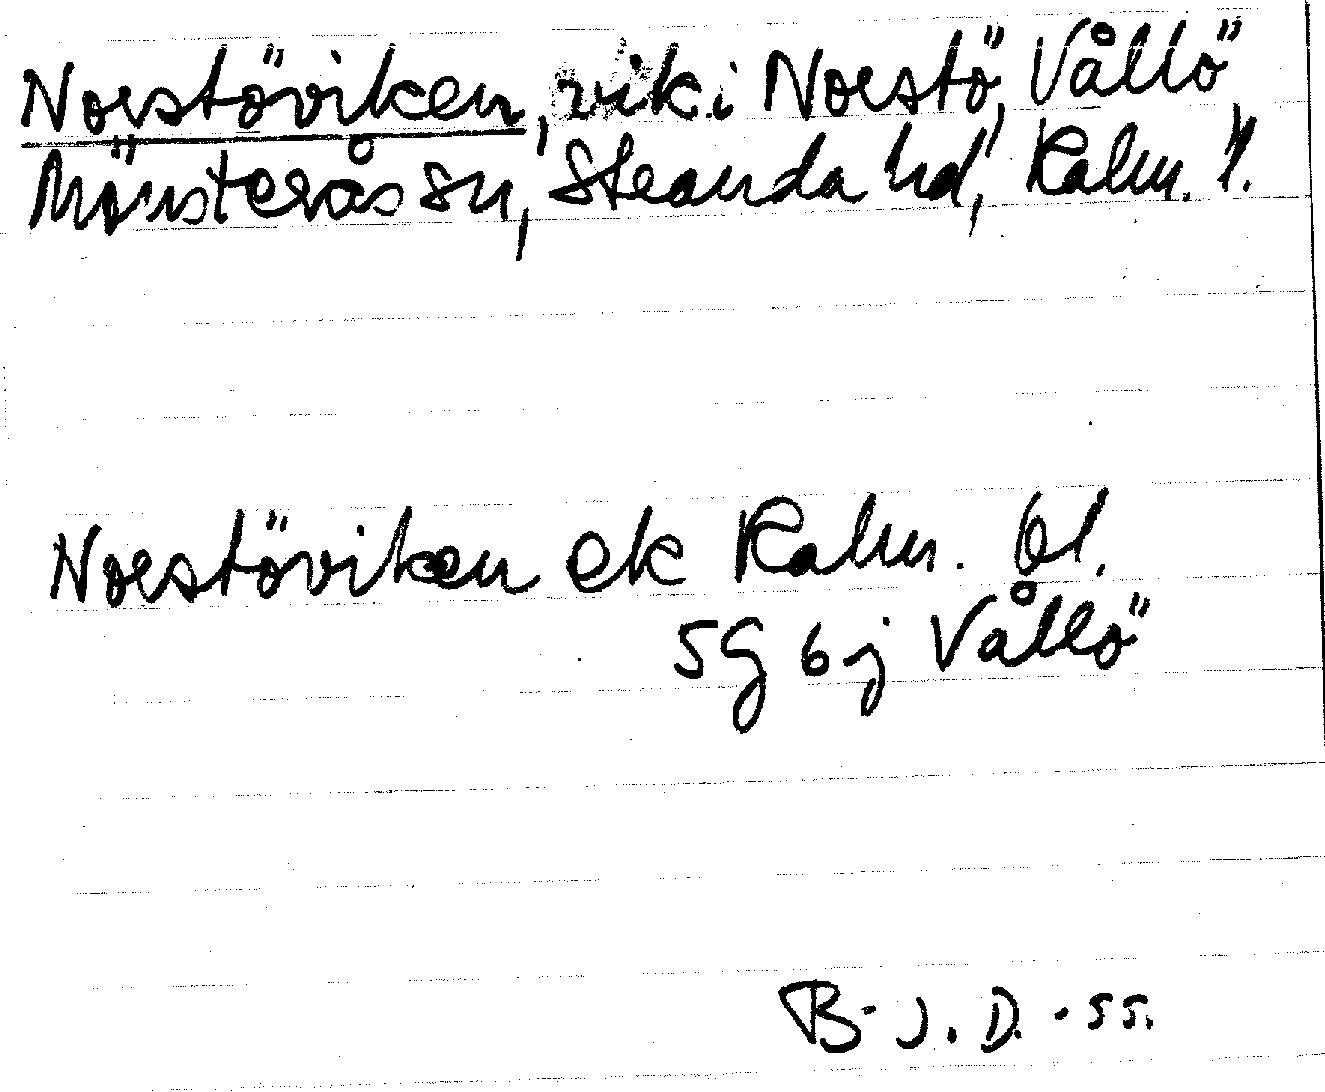 Norstöviken, vik i Norstö, Vållö
Mönsterås sn, Stranda hd, Kalm. l.
Norstöviken ek Kalm. bl.
5G 6j Vållö
B-J.D.-55.